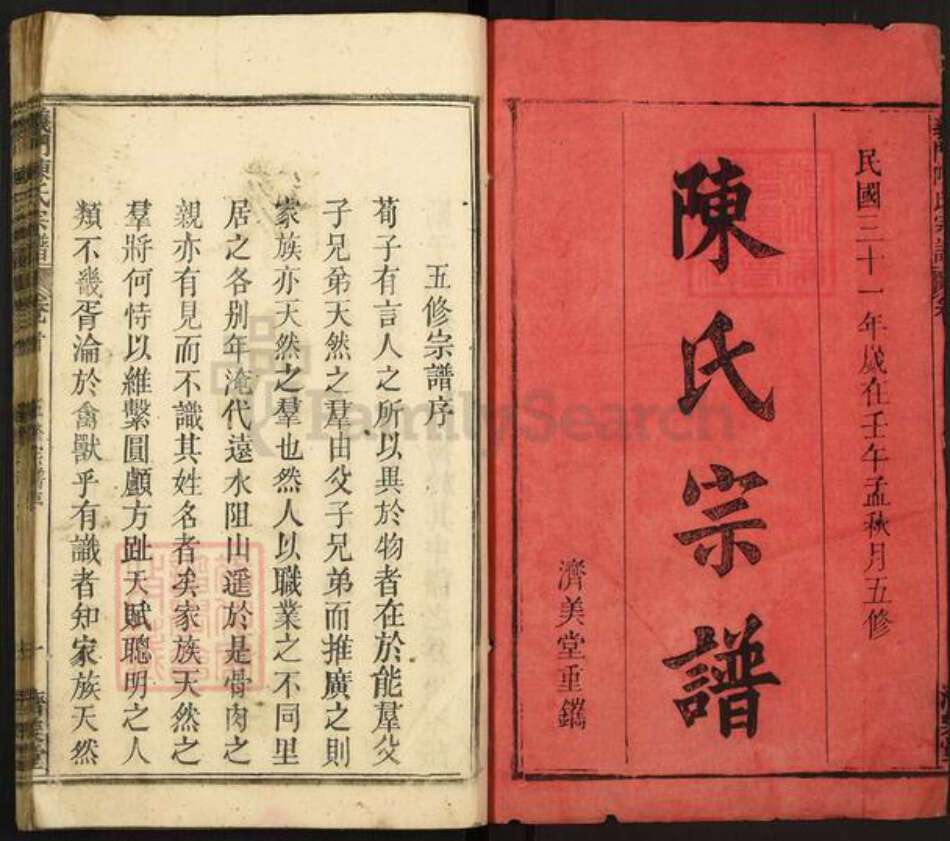 民國三十一年歲在壬午孟秋月五修
陳氏宗譜
濟美堂重鐫
五修宗譜序
荀子有言人之所以異於物者在於能羣父
子兄弟天然之羣由父子兄弟而推廣之則
家族亦天然之羣也然人以職業之不同里
居之各别年淹代遠水阻山遥於是骨肉之
親亦有見而不識其姓名者矣家族天然之
羣將何恃以維繫圓顱方趾天賦聰明之人
類不幾胥淪於禽獸乎有識者知家族天然
義門陳氏宗譜
FamilySearch